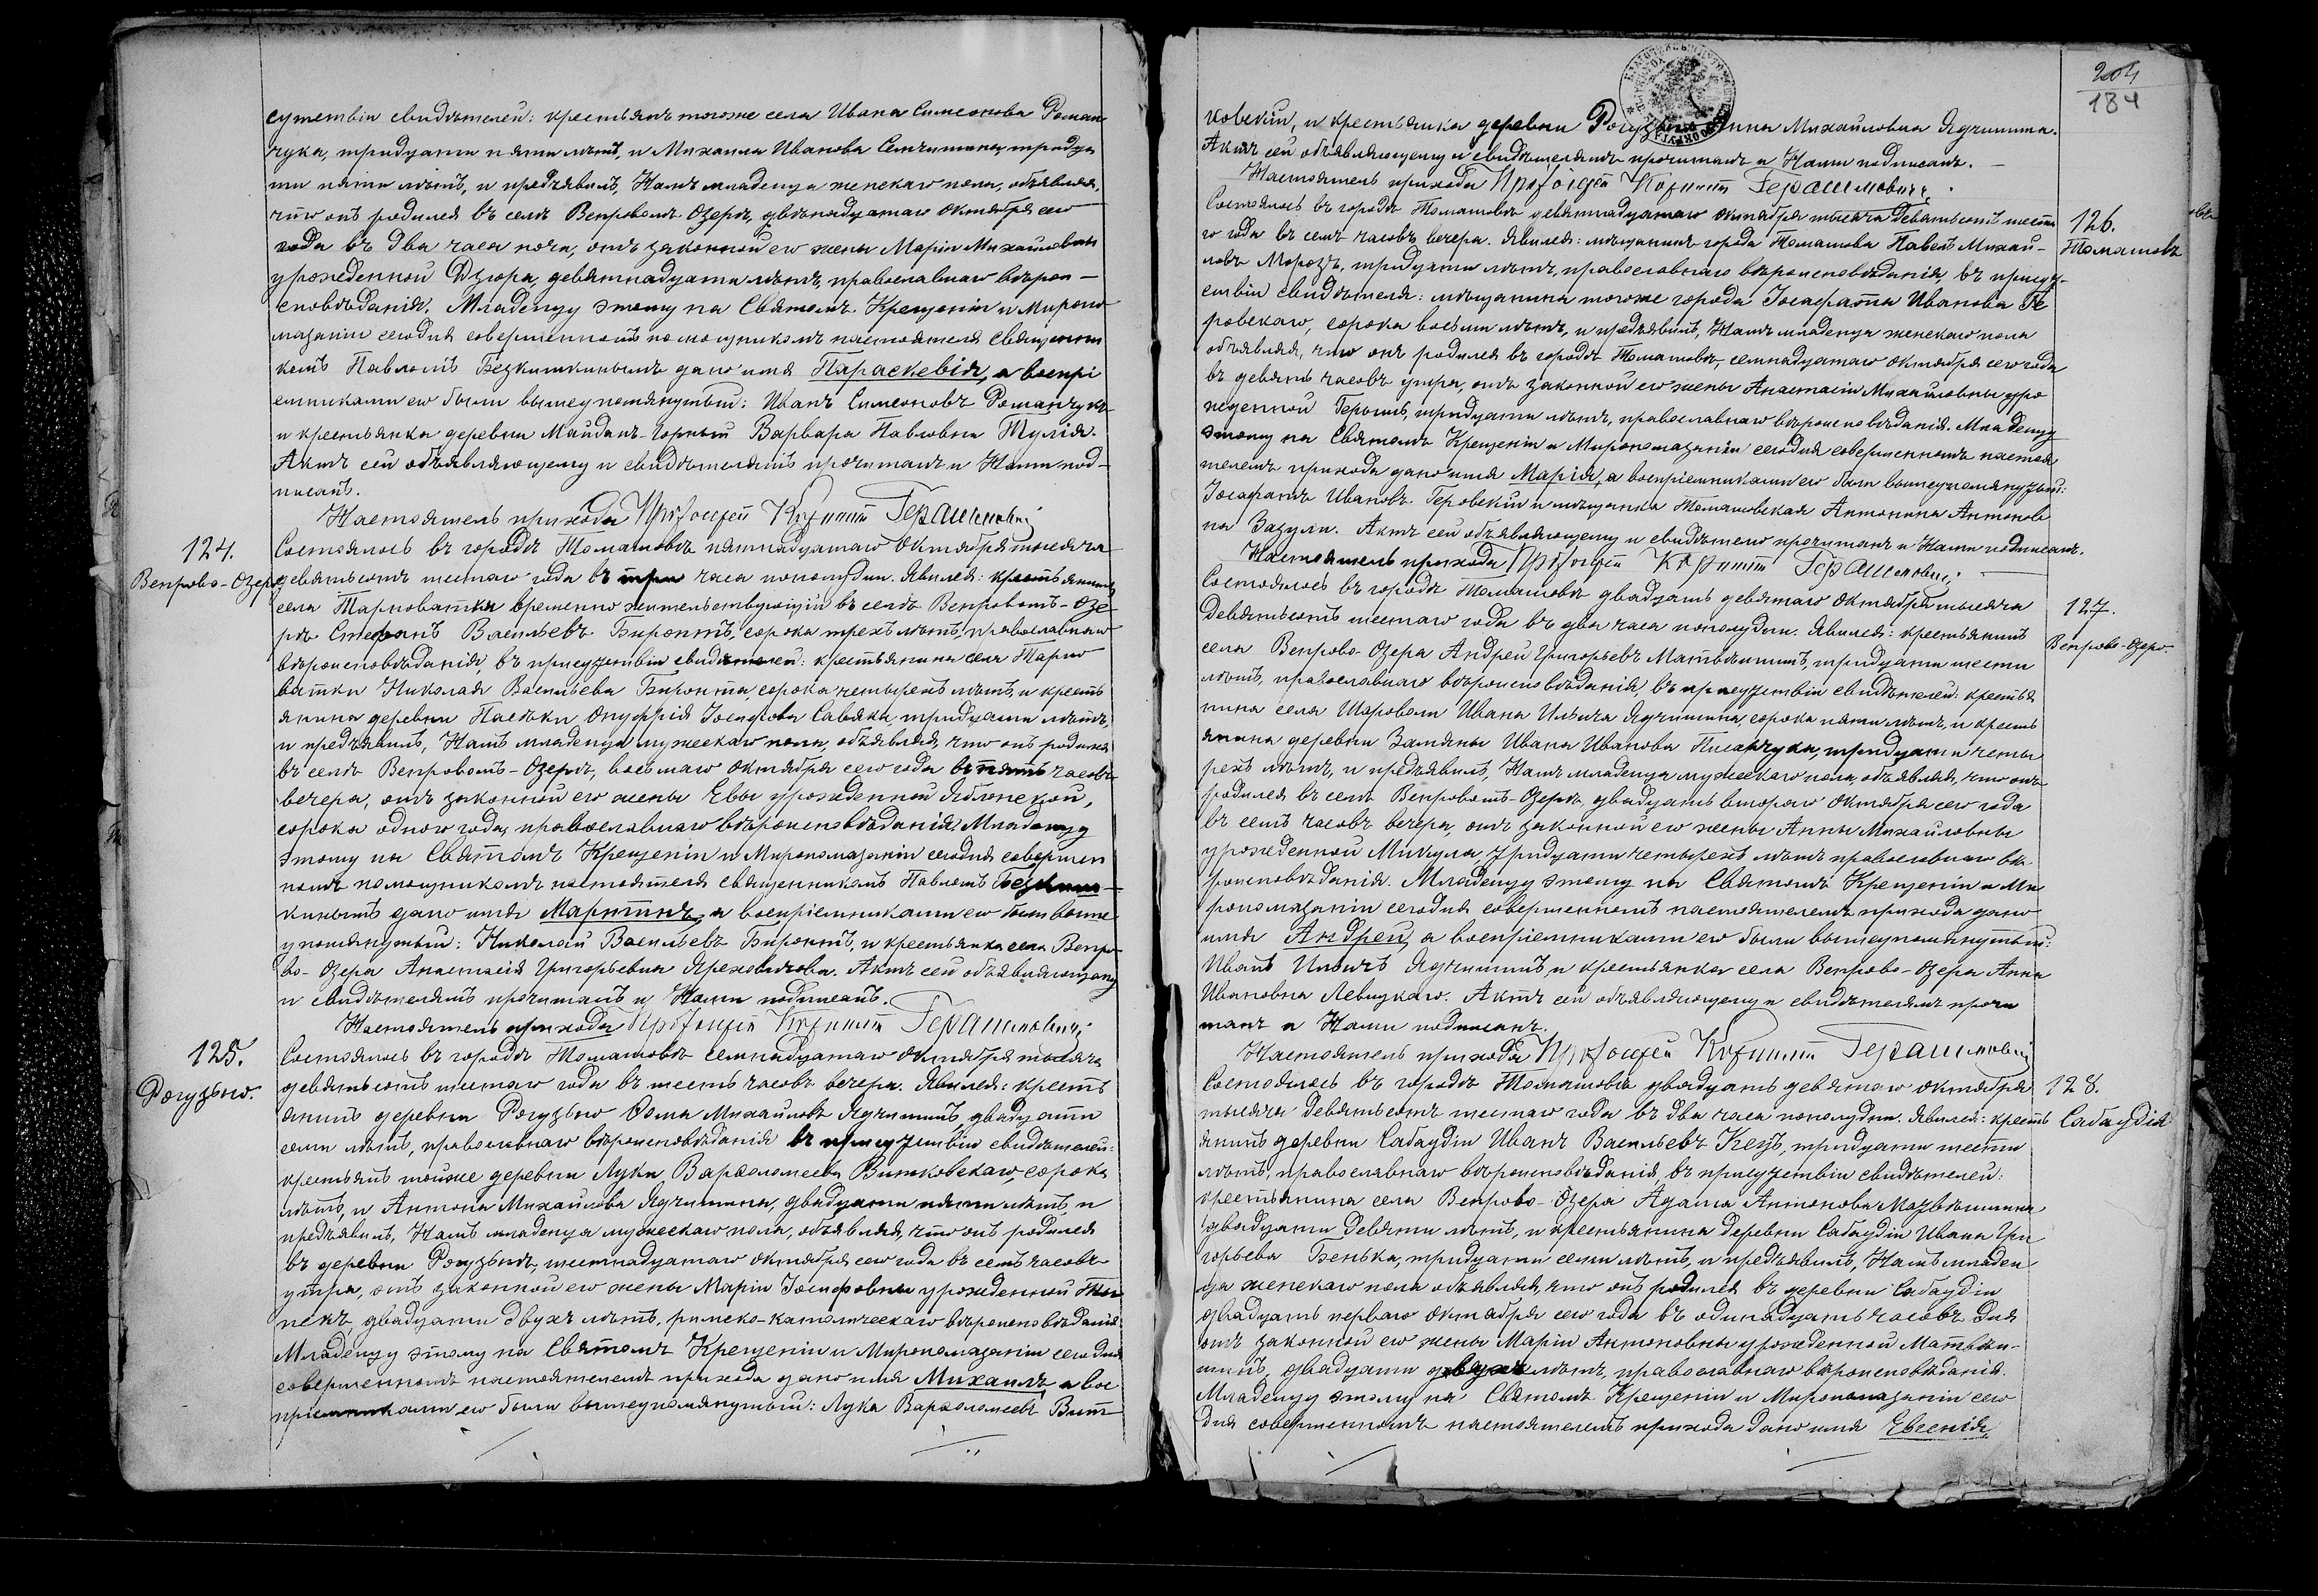 сутствіи свидѣтелей: крестьянъ тогоже села Ивана Симеонова Роман-
чука, тридцати пяти лѣтъ, и Михаила Иванова Семчишина, тридца
ти пяти лѣтъ, и предъявилъ Намъ младенца женскаго пола, объявляя,
что онъ родился въ селѣ Вепровомъ-Озерѣ, двѣнадцатаго Октября сего
года въ два часа ночи, отъ законной его жены Маріи Михайловны
урожденной Дзюра, девятнадцати лѣтъ, православнаго вѣрои-
сповѣданія. Младенцу этому на Святомъ Крещеніи и Миропо-
мазаніи сегодня совершенномъ помощникомъ настоятеля священни
комъ Павломъ Безкишкинымъ дано имя Параскевія, а воспрі
емниками его были вышеупомянутый: Иванъ Симеоновъ Романчукъ
и крестьянка деревни Майданъ-Горный Варвара Павловна Тулія.
Актъ сей объявляющему и свидѣтелямъ прочитанъ и Нами под-
писанъ.
Настоятель прихода Протоіерей Корнилій Герашиновичъ
124.
Вепрово-Озеро
Состоялось въ городѣ Томашовѣ пятнадцатаго Октября тысяча
девятьсотъ шестаго года въ три часа пополудни. Явился: крестьянинъ
села Тарноватка временно жительствующій въ селѣ Вепровомъ-Озе-
рѣ Стефанъ Васильевъ Биронтъ, сорока трехъ лѣтъ, православнаго
вѣроисповѣданія, въ присутствіи свидѣтелей: крестьянина села Тарно
ватки Николая Васильева Биронта, сорока четырехъ лѣтъ, и кресть
янина деревни Пасѣки Онуфрія Іосифова Савяка, тридцати лѣтъ,
и предъявилъ, Намъ младенца мужескаго пола, объявляя, что онъ родился
въ селѣ Вепровомъ-Озерѣ, восьмаго Октября сего года въ пять часовъ
вечера, отъ законной его жены Евы урожденной Яблонской,
сорока одного года, православнаго вѣроисповѣданія. Младенцу
этому на Святомъ Крещеніи и Миропомазаніи сегодня совершен
номъ помощникомъ настоятеля священникомъ Павломъ Безкиш-
кинымъ дано имя Мартинъ, а воспріемниками его были выше
упомянутый: Николай Васильевъ Биронтъ, и крестьянка села Вепро-
во-Озера Анастасія Григорьевна Яреховичова. Актъ сей объявляющему
и свидѣтелямъ прочитанъ и Нами подписанъ.
Настоятель прихода Протоіерей Корнилій Герашиновичъ
125.
Рогузьно.
Состоялось въ городѣ Томашовѣ семнадцатаго Октября тысяча
девятьсотъ шестаго года въ шесть часовъ вечера. Явился: кресть
янинъ деревни Рогузьно Ѳома Михайловъ Ядчишинъ, двадцати
семи лѣтъ, православнаго вѣроисповѣданія въ присутствіи свидѣтелей:
крестьянъ тойже деревни Луки Варѳоломеева Витковскаго, сорока
лѣтъ, и Антона Михайлова Ядчишина, двадцати пяти лѣтъ, и
предъявилъ, Намъ младенца мужескаго пола, объявляя, что онъ родился
въ деревни Рогузьнѣ, шестнадцатаго Октября сего года въ семь часовъ
утра, отъ законной его жены Маріи Іосифовны урожденной
двадцати двухъ лѣтъ, римско-католическаго вѣроисповѣданія.
Младенцу этому на Святомъ Крещеніи и Миропомазаніи сегодня
совершенномъ настоятелемъ прихода дано имя Михаилъ, а вос
пріемниками его были вышеупомянутый: Лука Варѳоломеевъ Вит-
204
184
ковскій, и крестьянка деревни Рогузьно Анна Михайловна Ядчишина.
Актъ сей объявляющему и свидѣтелямъ прочитанъ и Нами подписанъ.
Настоятель прихода Протоіерей Корнилій Герашиновичъ
126.
Томашовъ
Состоялось въ городѣ Томашовѣ девятнадцатаго Октября тысяча девятьсотъ шеста
го года въ семь часовъ вечера. Явился: мѣщанинъ города Томашова Павелъ Михай-
ловъ Морозъ, тридцати лѣтъ, православнаго вѣроисповѣданія въ присут-
ствіи свидѣтеля: мѣщанина тогоже города Іосафата Иванова Ге
ровскаго, сорока восьми лѣтъ, и предъявилъ, Намъ младенца женскаго пола
объявляя, что онъ родился въ городѣ Томашовѣ, семнадцатаго Октября сего года
въ девять часовъ утра, отъ законной его жены Анастасіи Михайловны уро
жденной Герошъ, тридцати лѣтъ, православнаго вѣроисповѣданія. Младенцу
этому на Святомъ Крещеніи и Миропомазаніи сегодня совершенномъ настоя
телемъ прихода дано имя Марія, а воспріемниками его были вышеупомянутый:
Іосафатъ Ивановъ Геровскій и мѣщанка Томашовская Антонина Антонов
на Зазули. Актъ сей объявляющему и свидѣтелю прочитанъ и Нами подписанъ.
Настоятель прихода Протоіерей Корнилій Герашиновичъ
127.
Вепрово-Озеро
Состоялось въ городѣ Томашовѣ двадцать девятаго Октября тысяча
девятьсотъ шестаго года въ два часа пополудни. Явился: крестьянинъ
села Вепрово-Озера Андрей Григорьевъ Матвѣишинъ, тридцати шести
лѣтъ, православнаго вѣроисповѣданія, въ присутствіи свидѣтелей: крестья
нина села Шароволи Ивана Ильича Ядчишина, сорока пяти лѣтъ, и кресть
янина деревни Замяны Ивана Иванова Писанчука, тридцати четы
рехъ лѣтъ, и предъявилъ, Намъ младенца мужескаго пола, объявляя, что онъ
родился въ селѣ Вепровомъ-Озерѣ, двадцать втораго Октября сего года
въ семь часовъ вечера, отъ законной его жены Анны Михайловны
урожденной Микула, тридцати четырехъ лѣтъ православнаго вѣ-
роисповѣданія. Младенцу этому на Святомъ Крещеніи и Ми
ропомазаніи сегодня совершенномъ настоятелемъ прихода дано
имя Андрей, а воспріемниками его были вышеупомянутый:
Иванъ Ильичъ Ядчишинъ, и крестьянка села Вепрово-Озера Анна
Ивановна Левицкаго. Актъ сей объявляющему и свидѣтелямъ прочи
танъ и Нами подписанъ.
Настоятель прихода Протоіерей Корнилій Герашиновичъ
128.
Сабаудія
Состоялось въ городѣ Томашовѣ двадцать девятаго Октября
тысяча девятьсотъ шестаго года въ два часа пополудни. Явился: кресть
янинъ деревни Сабаудіи Иванъ Васильевъ Кезъ, тридцати шести
лѣтъ, православнаго вѣроисповѣданія, въ присутствіи свидѣтелей:
крестьянина села Вепрово-Озера Адама Антонова Матвѣишина
двадцати девяти лѣтъ, и крестьянина деревни Сабаудіи Ивана Гри
горьева Бенька, тридцати семи лѣтъ, и предъявилъ, Намъ младен
ца женскаго пола объявляя, что онъ родился въ деревни Сабаудіи
двадцать перваго Октября сего года въ одинадцать часовъ дня
отъ законной его жены Маріи Антоновны урожденной Матвѣи-
шинъ, двадцати двухъ лѣтъ, православнаго вѣроисповѣданія.
Младенцу этому на Святомъ Крещеніи и Миропомазаніи сего
дня совершенномъ настоятелемъ прихода дано имя Евгенія,